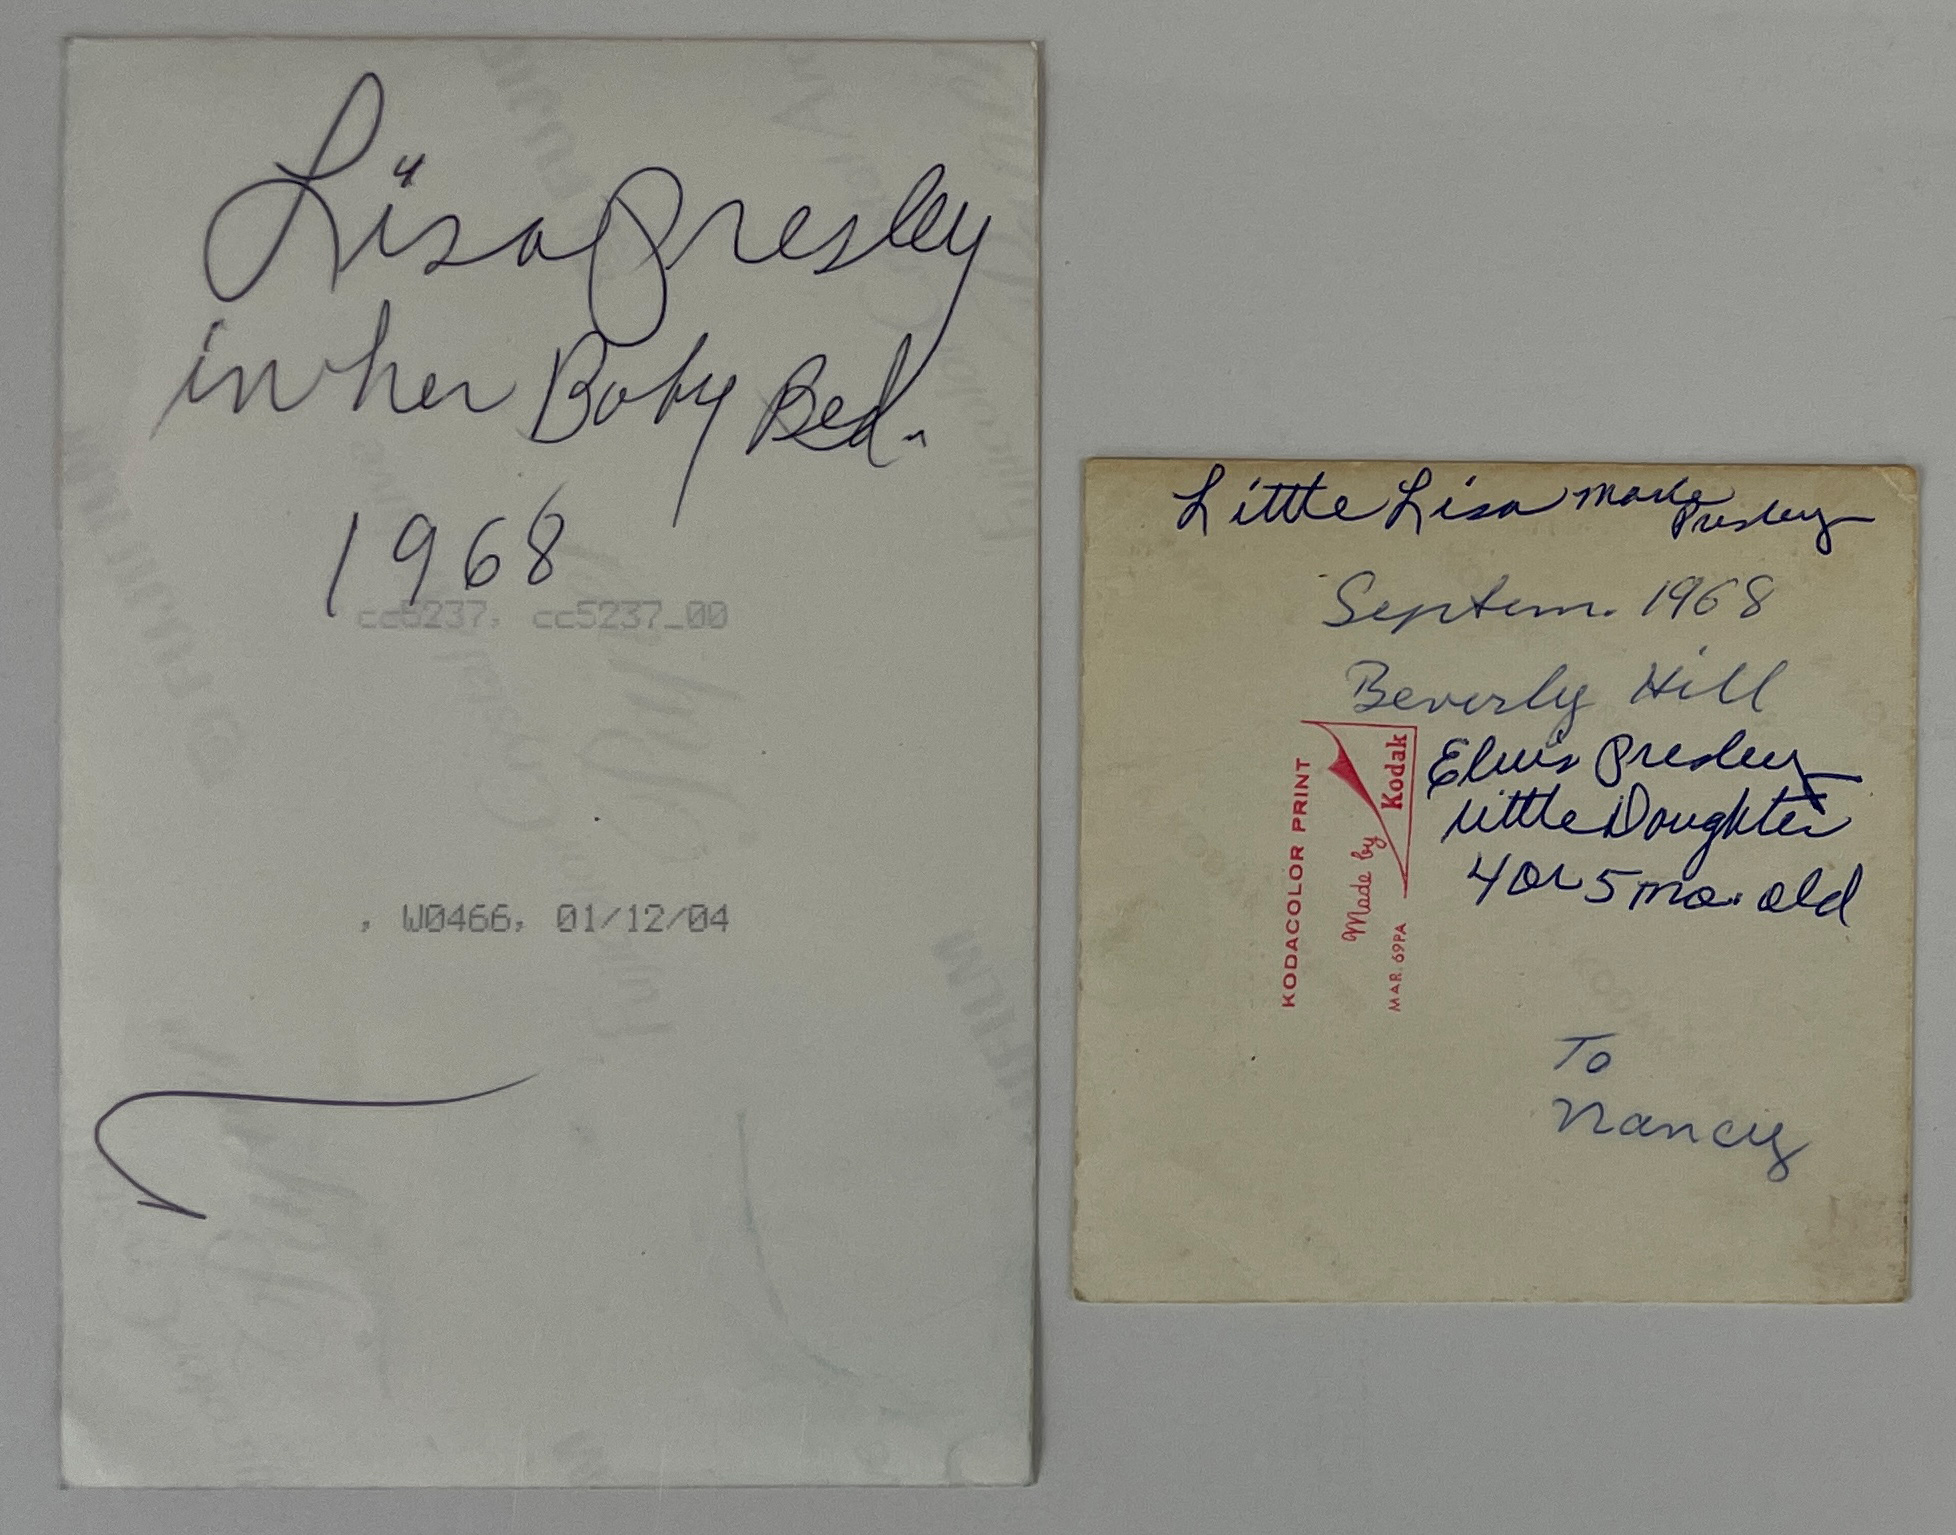 Lisa Presley
in her Baby Bed.
1968
cc5237, cc5237_00
, W0466, 01/12/04
Little Lisa Marie
Presley
Septem. 1968
Beverly Hill
Elvis Presley
little Doughter
4 or 5 mo. old
To
Nancy
KODACOLOR PRINT
Made by
Kodak
MAR. 69PA